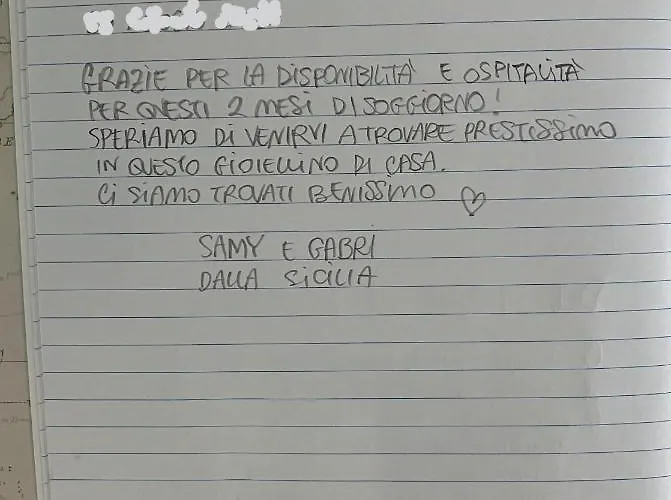 GRAZIE PER LA DISPONIBILITÀ E OSPITALITÀ
PER QUESTI 2 MESI DI SOGGIORNO!
SPERIAMO DI VENIRVI A TROVARE PRESTISSIMO
IN QUESTO GIOIELLINO DI CASA.
Ci SiAMO TROVATI BENISSIMO ♡
SAMY E GABRI
DALLA SiCiLIA